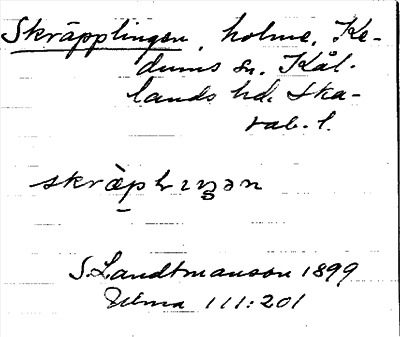 Skräpplingen, holme, Ke-
dums sn. Kål-
lands hd. Ska-
rab. l.
S. Landtmanson 1899
111:201